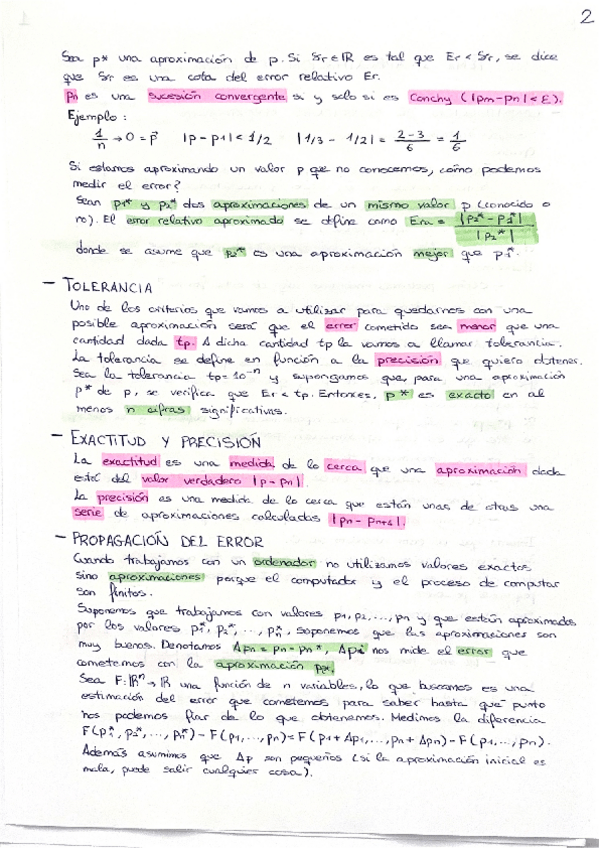 2
Sea p* una aproximación de p. Si δr ∈ ℝ es tal que Er < δr, se dice
que δr es una cota del error relativo Er.
pn es una sucesión convergente si y solo si es Conchy (|pm-pn| < ε).
Ejemplo:
1/n → 0 = p |p - p1| < 1/2 |1/3 - 1/2| = 2-3/6 = 1/6
Si estamos aproximando un valor p que no conocemos, cómo podemos
medir el error?
Sean p1* y p2* dos aproximaciones de un mismo valor p (conocido o
no). El error relativo aproximado se define como Era = |p2* - p1*| / |p2*|
donde se asume que p2* es una aproximación mejor que p1*.
- TOLERANCIA
Uno de los criterios que vamos a utilizar para quedarnos con una
posible aproximación será que el error cometido sea menor que una
cantidad dada tp. A dicha cantidad tp la vamos a llamar tolerancia.
La tolerancia se define en función a la precisión que quiero obtener.
Sea la tolerancia tp = 10⁻ⁿ y supongamos que, para una aproximación
p* de p, se verifica que Er < tp. Entonces, p* es exacto en al
menos n cifras significativas.
- EXACTITUD Y PRECISIÓN
La exactitud es una medida de lo cerca que una aproximación dada
está del valor verdadero |p - pn|.
La precisión es una medida de lo cerca que están unas de otras una
serie de aproximaciones calculadas |pn - pn+1|.
- PROPAGACIÓN DEL ERROR
Cuando trabajamos con un ordenador no utilizamos valores exactos
sino aproximaciones porque el computador y el proceso de computar
son finitos.
Suponemos que trabajamos con valores p1, p2, ..., pn y que están aproximados
por los valores p1*, p2*, ..., pn*, suponemos que las aproximaciones son
muy buenas. Denotamos Δpn = pn - pn*, Δpi nos mide el error que
cometemos con la aproximación
Sea F: ℝⁿ → ℝ una función de n variables, lo que buscamos es una
estimación del error que cometemos para saber hasta que punto
nos podemos fiar de lo que obtenemos. Medimos la diferencia
F(p1*, p2*, ..., pn*) - F(p1, ..., pn) = F(p1 + Δp1, ..., pn + Δpn) - F(p1, ..., pn).
Además asumimos que Δp son pequeños (si la aproximación inicial es
mala, puede salir cualquier cosa).